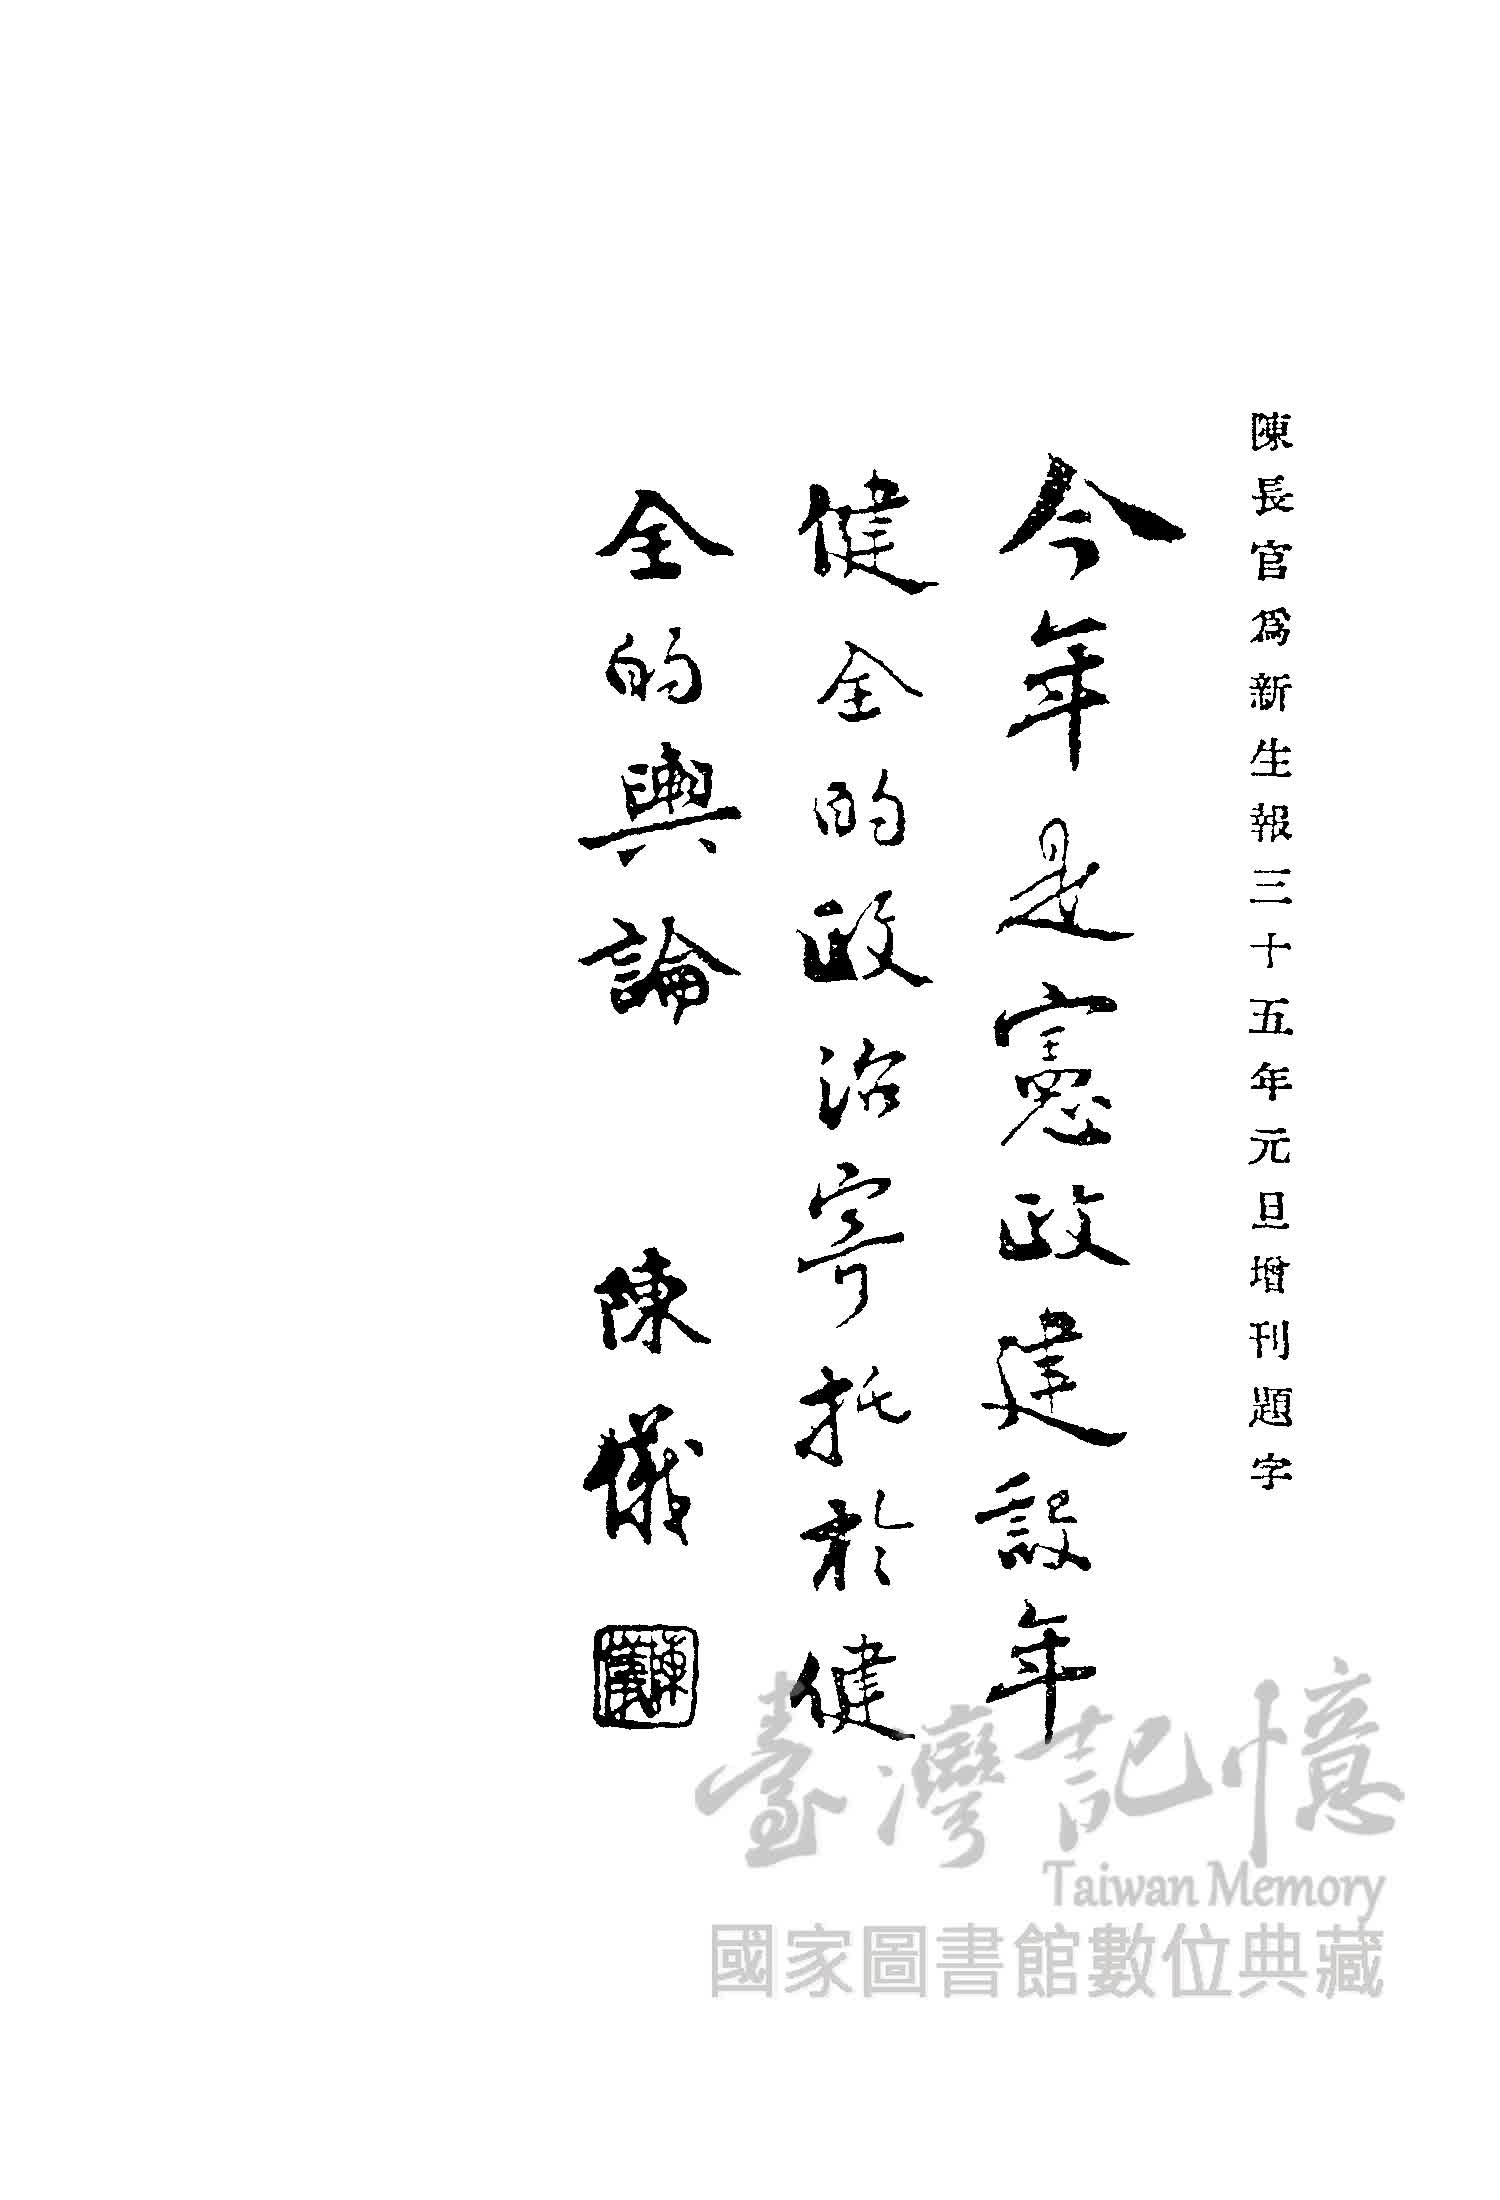 陳長官爲新生報三十五年元旦增刊題字
今年是憲政建設年
健全的政治寄托於健
全的輿論
陳儀
陳儀
臺灣記憶
Taiwan Memory
國家圖書館數位典藏